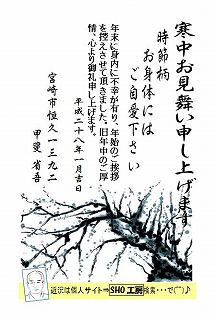 寒中お見舞い申し上げます
時節柄
お身体には
ご自愛下さい
年末に身内に不幸が有り、年始のご挨拶
を控えさせて頂きました。旧年中のご厚
情、心より御礼申し上げます。
平成二十八年一月吉日
宮崎市恒久一三九二
甲斐 省吾
近況は個人サイト⇒SHO工房検索・・・で(^^)♪